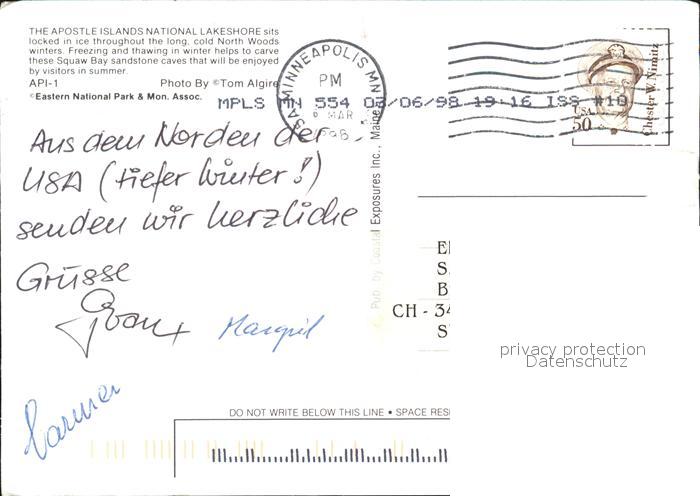 THE APOSTLE ISLANDS NATIONAL LAKESHORE sits
locked in ice throughout the long, cold North Woods
winters. Freezing and thawing in winter helps to carve
these Squaw Bay sandstone caves that will be enjoyed
by visitors in summer.
API-1 Photo By ©Tom Algire
©Eastern National Park & Mon. Assoc.
MINNEAPOLIS MN
PM
MAR
MPLS MN 554 03/06/98 19:16 ISS #10
USA
50
Chester W. Nimitz
Aus dem Norden der
USA (tiefer Winter!)
senden wir herzliche
Grüsse
Pub. by Coastal Exposures Inc., Maine
CH - 34
privacy protection
Datenschutz
DO NOT WRITE BELOW THIS LINE • SPACE RES